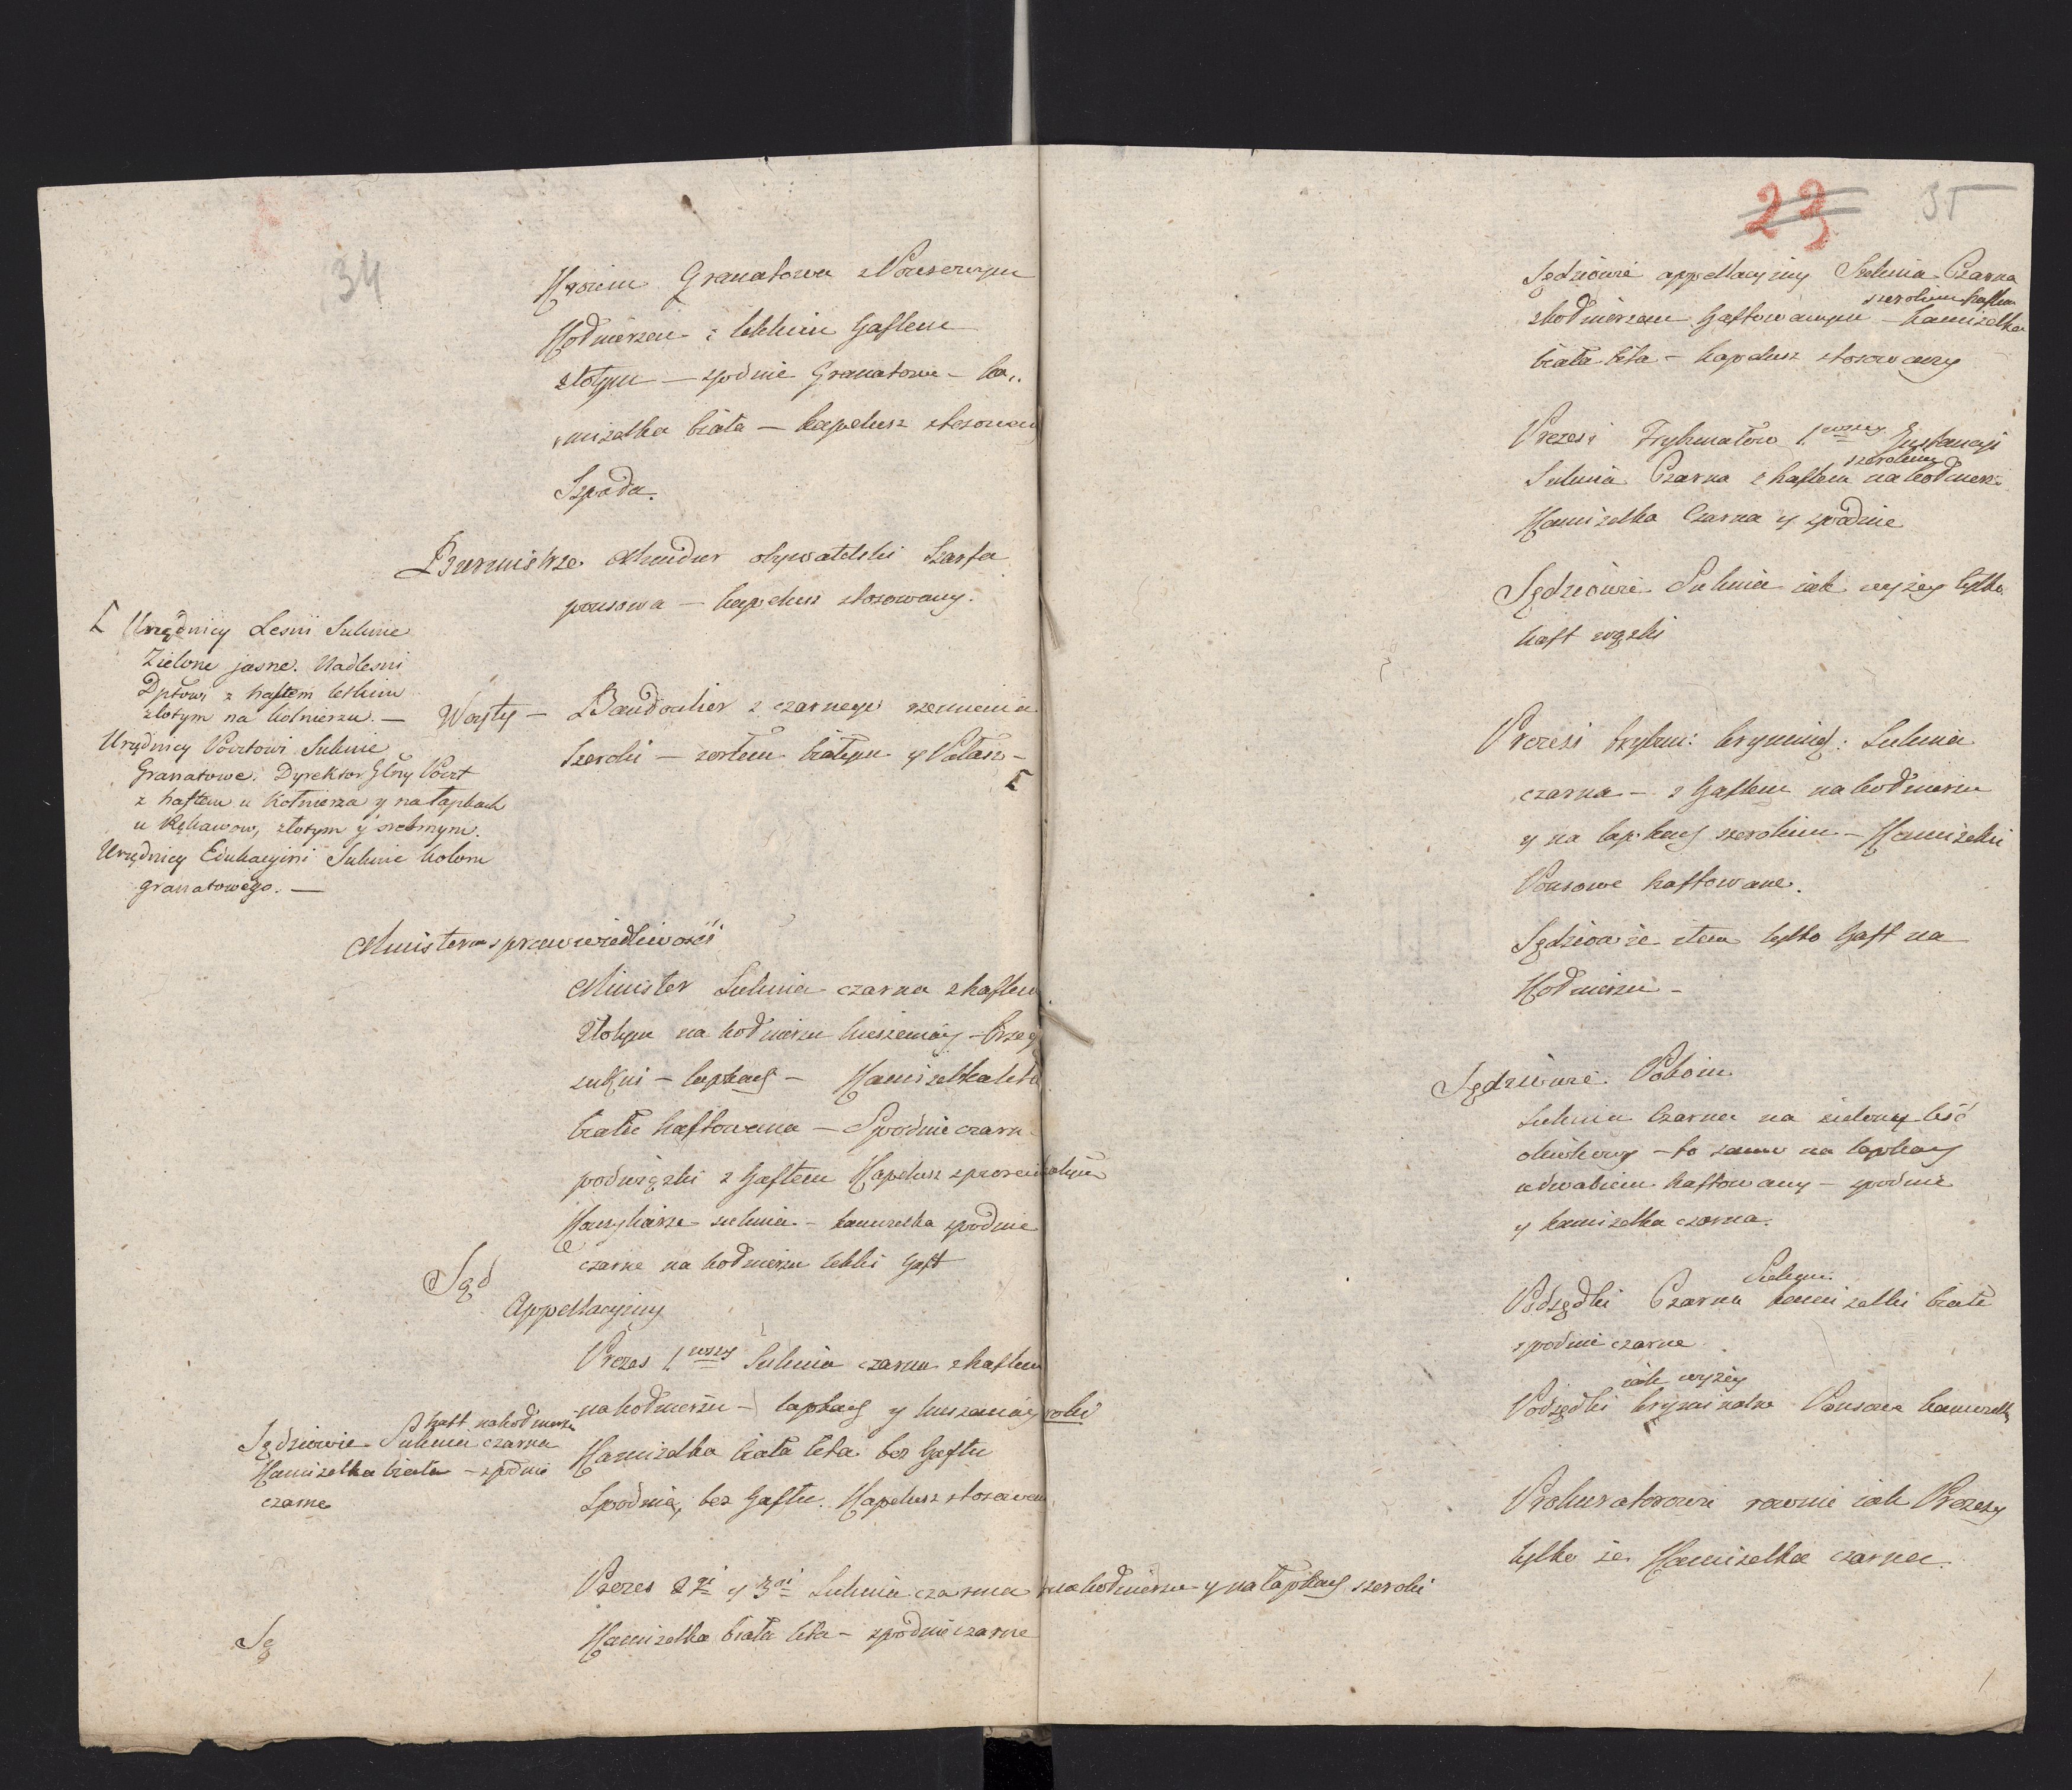 34
Granatowa z Ponsowym
Kołnierzem i lekkim Haftem
złotym — spodnie Granatowe — ka„
mizelka biała — kapelusz stosowany
Szpada.
Burmistrze Mundur obywatelski Szarfa
ponsowa — kapelusz stosowany.
Urzędnicy Lesni Suknie
Zielone jasne. Nadlesni
Dptowi z haftem lekkim
złotym na kołnierzu. —
Urzędnicy Pocztowi Suknie
Granatowe. Dyrektor Głny Poczt
z haftem u Kołnierza y na łapkach
u Rękawow, złotym y srebrnym.
Urzędnicy Edukacyini Suknie koloru
granatowego. —
Woyty — Bandoulier z czarnego rzemienia
szeroki — z orłem białym y Pałasz —
Minister sprawiedliwości
Minister Suknia czarna z haftem
złotym na kołnierzu kieszeniach — brzeg
sukni — łapkach — Kamizelka lita
biała haftowana — Spodnie czarne
podwiązki z Haftem Kapelusz z piorem
suknia — kamizelka spodnie
czarne na kołnierzu lekki Haft
Sąd
Appellacyiny
Prezes 1wszy Suknia czarna z haftem
na kołnierzu — łapkach y kieszeniach
Kamizelka biała lita bez Haftu
Spodnie, bez Haftu. Kapelusz stosowany
haft na kołnierzu
Sędziowie Suknia czarna
Kamizelka biała — spodnie
czarne
Prezes 2gi y 3ci Suknia czarna na kołnierzu y na łapkach szeroki
Kamizelka biała lita — spodnie czarne
Są
23 35
Sędziowie appellacyiny Suknia Czarna
szerokim haftem
z kołnierzem Haftowanym — kamizelka
biała lita — kapelusz stosowany
Prezesi Trybunałow 1wszey Instancyi
szerokim
Suknia Czarna z haftem na kołnierz
Kamizelka Czarna y spodnie
Sędziowie Suknia iak wyżey tylko
haft wązki
Prezesi trybun: krymin: Suknia
czarna — z Haftem na kołnierzu
y na łapkach szerokim — Kamizelki
Ponsowe haftowane.
Sędziowie item tylko Haft na
Kołnierzu —
Sędziowie Pokoiu
Suknia Czarna na zielony liść
oliwkowy — to samo na łapkach
iedwabiem haftowany — spodnie
y kamizelka czarna.
Suknia
Podsędki Czarna kamizelki białe
spodnie czarne
iak wyżey
Podsędki kryminalne Ponsowe kamizelki
Prokuratorowie rownie iak Prezesy
tylko że Kamizelka czarna.